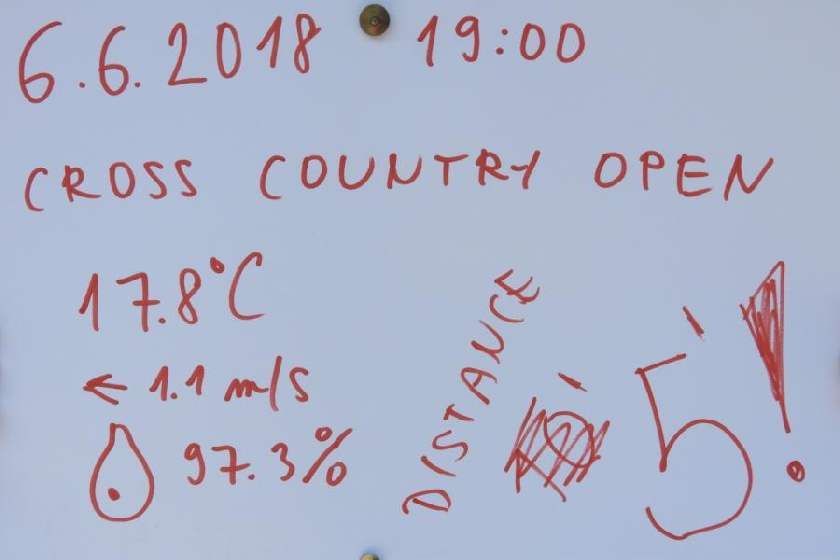 6.6.2018 19:00
CROSS COUNTRY OPEN
17.8°C
← 1.1 m/s
97.3%
DISTANCE
5'!